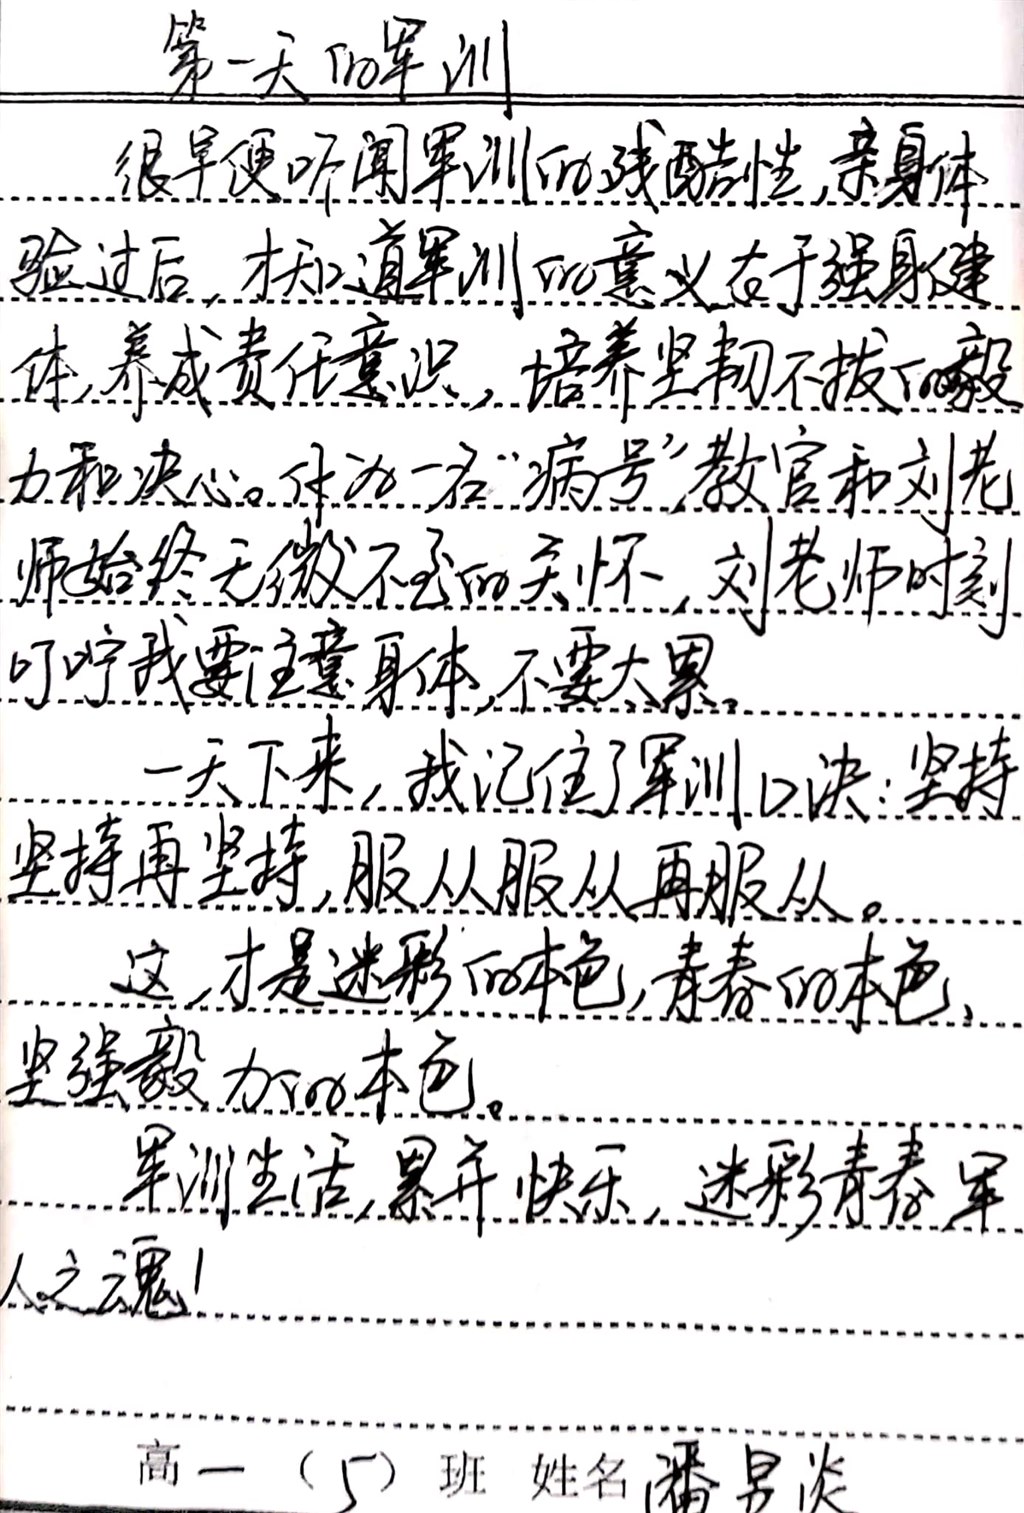 第一天的军训
很早便听闻军训的残酷性,亲身体
验过后,才知道军训的意义在于强身健
体,养成责任意识,培养坚韧不拔的毅
力和决心。作为一名“病号”,教官和刘老
师始终无微不至的关怀,刘老师时刻
叮咛我要注意身体,不要太累。
一天下来,我记住了军训口决:坚持
坚持再坚持,服从服从再服从。
这,才是迷彩的本色,青春的本色,
坚强毅力的本色。
军训生活,累并快乐,迷彩青春,军
人之魂!
高一(5)班 姓名潘